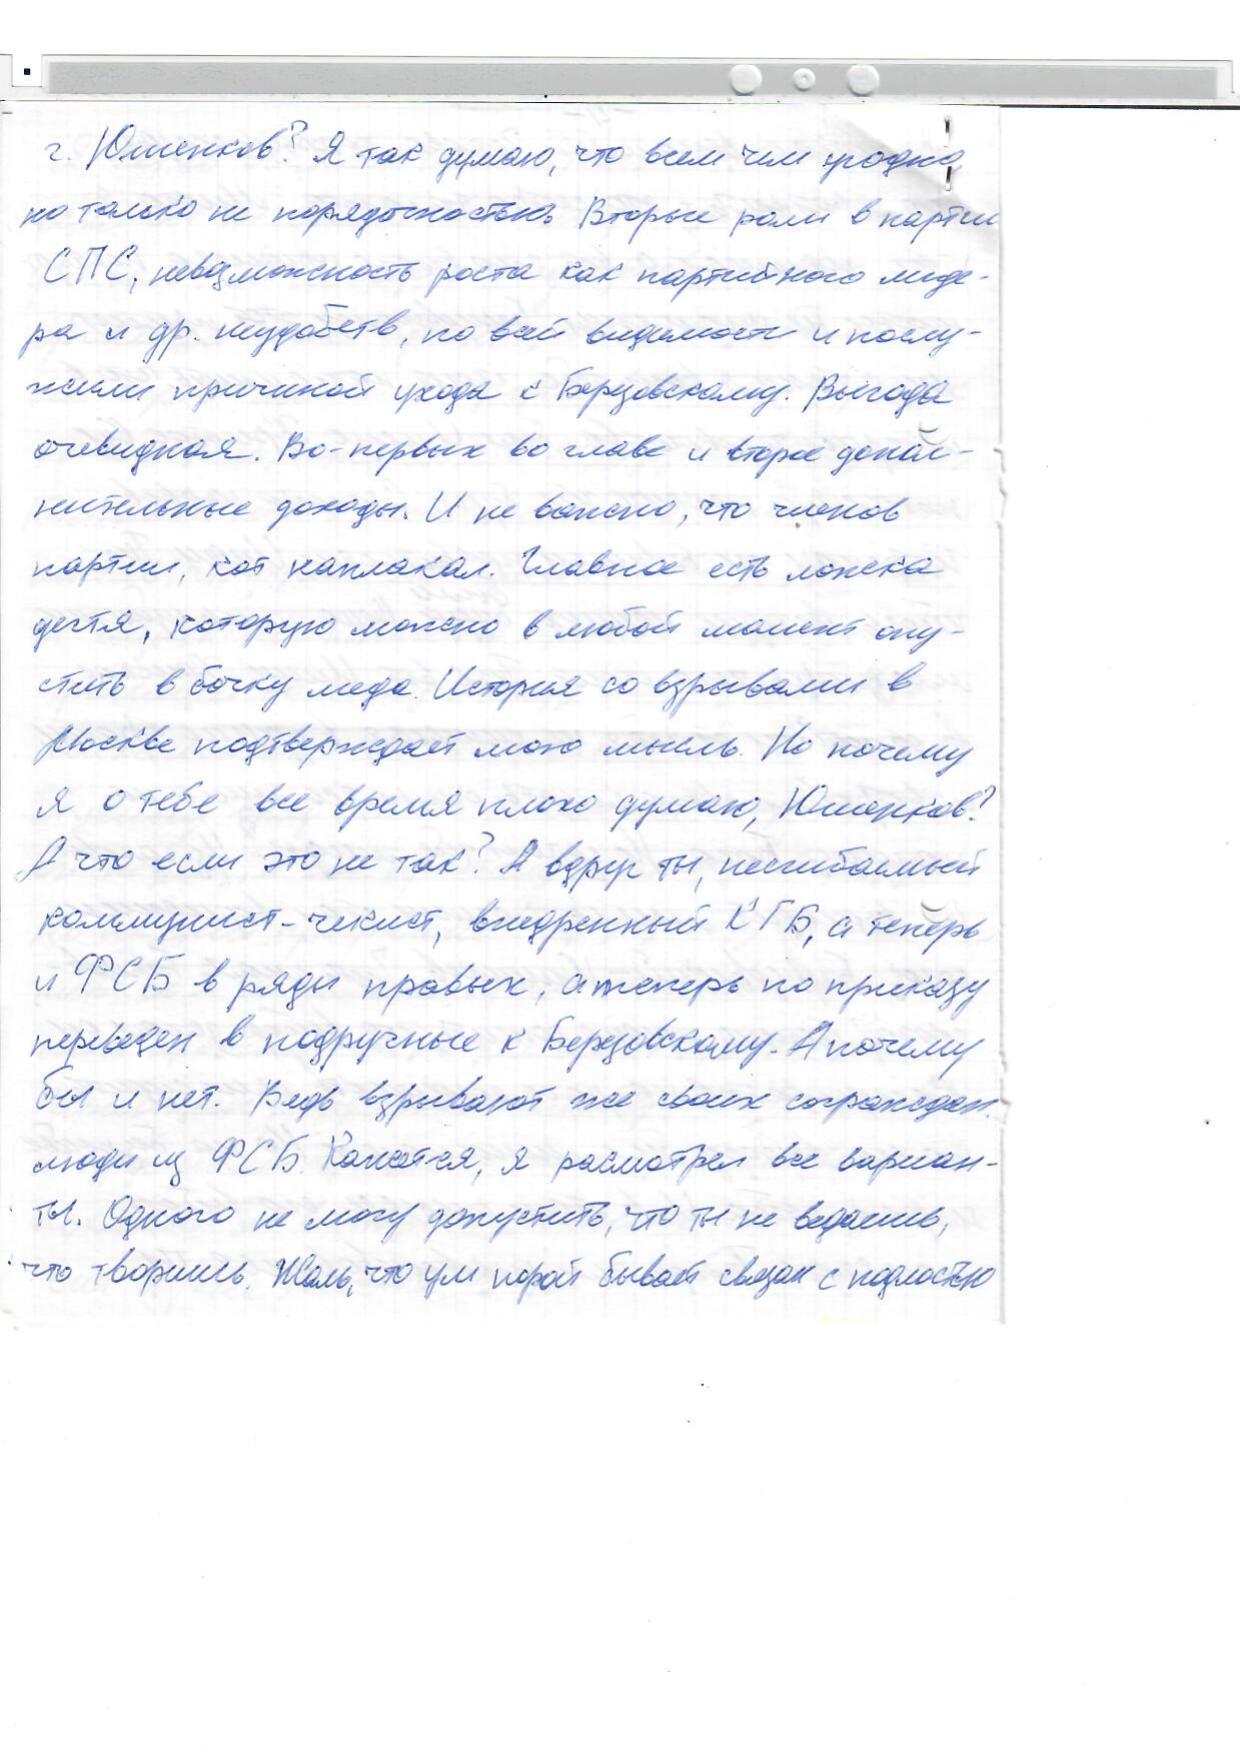 г. Юшенков? Я так думаю, что всем чем угодно,
но только не порядочностью. Вторые роли в партии
СПС, невозможность роста как партийного лиде-
ра и др. неудобств, по всей видимости и послу-
жили причиной ухода к Березовскому. Выгода
очевидная. Во-первых во главе и второе допол-
нительные доходы. И не важно, что членов
партии, кот наплакал. Главное есть ложка
дегтя, которую можно в любой момент опу-
стить в бочку меда. История со взрывами в
Москве подтверждает мою мысль. Но почему
я о тебе все время плохо думаю, Юшенков?
А что если это не так? А вдруг ты, несгибаемый
коммунист-чекист, внедренный КГБ, а теперь
и ФСБ в ряды правых, а теперь по приказу
переведен в подручные к Березовскому. А почему
бы и нет. Ведь взрывают же своих сограждан
люди из ФСБ. Кажется, я расмотрел все вариан-
ты. Одного не могу допустить, что ты не ведаешь,
что творишь. Жаль, что ум порой бывает связан с подлостью